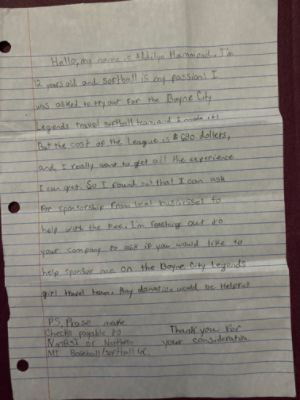 Hello, my name is Hammond. I'm
12 years old and softball is my passion! I
was asked to try out for the Boyne City
Legends travel softball team and I made it!
But the cost of the League is $ dollars,
and I really want to get all the experience
I can get. So I found out that I can ask
for sponsorship from local businesses to
help with the fees. I'm reaching out to
your company to ask if you would like to
help sponsor me on the Boyne City Legends
girl travel team. Any donation would be helpful
P.S. Please make
Checks payable to
or Northern
MI Baseball/Softball
Thank you for
your consideration